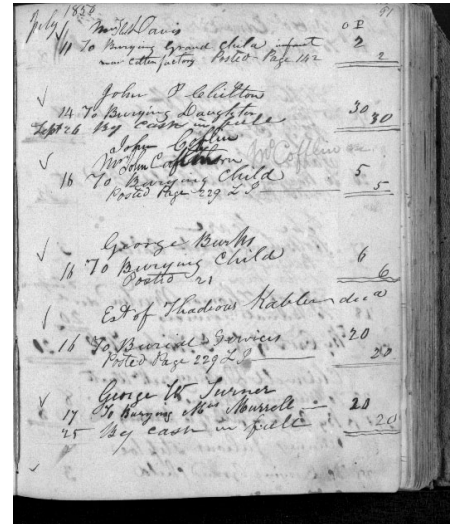 July 1856 91
Mrs Davis o P
11 To Burying Grand Child infant 2
near Cotten factory Posted Page 142 2
John P Chilton
14 To Burying Daughter 30
Sept 26 By Cash in full 30
John Coflin
Mr John McCoflin
16 To Burying Child 5
Posted Page 229 L J 5
George Burks
16 To Burying Child 6
Posted 21 6
Est of Thadious Kablen decd
16 To Buriel Services 20
Posted Page 229 L J 20
George W Turner
17 To Burying Mrs Murrell 20
25 By Cash in full 20